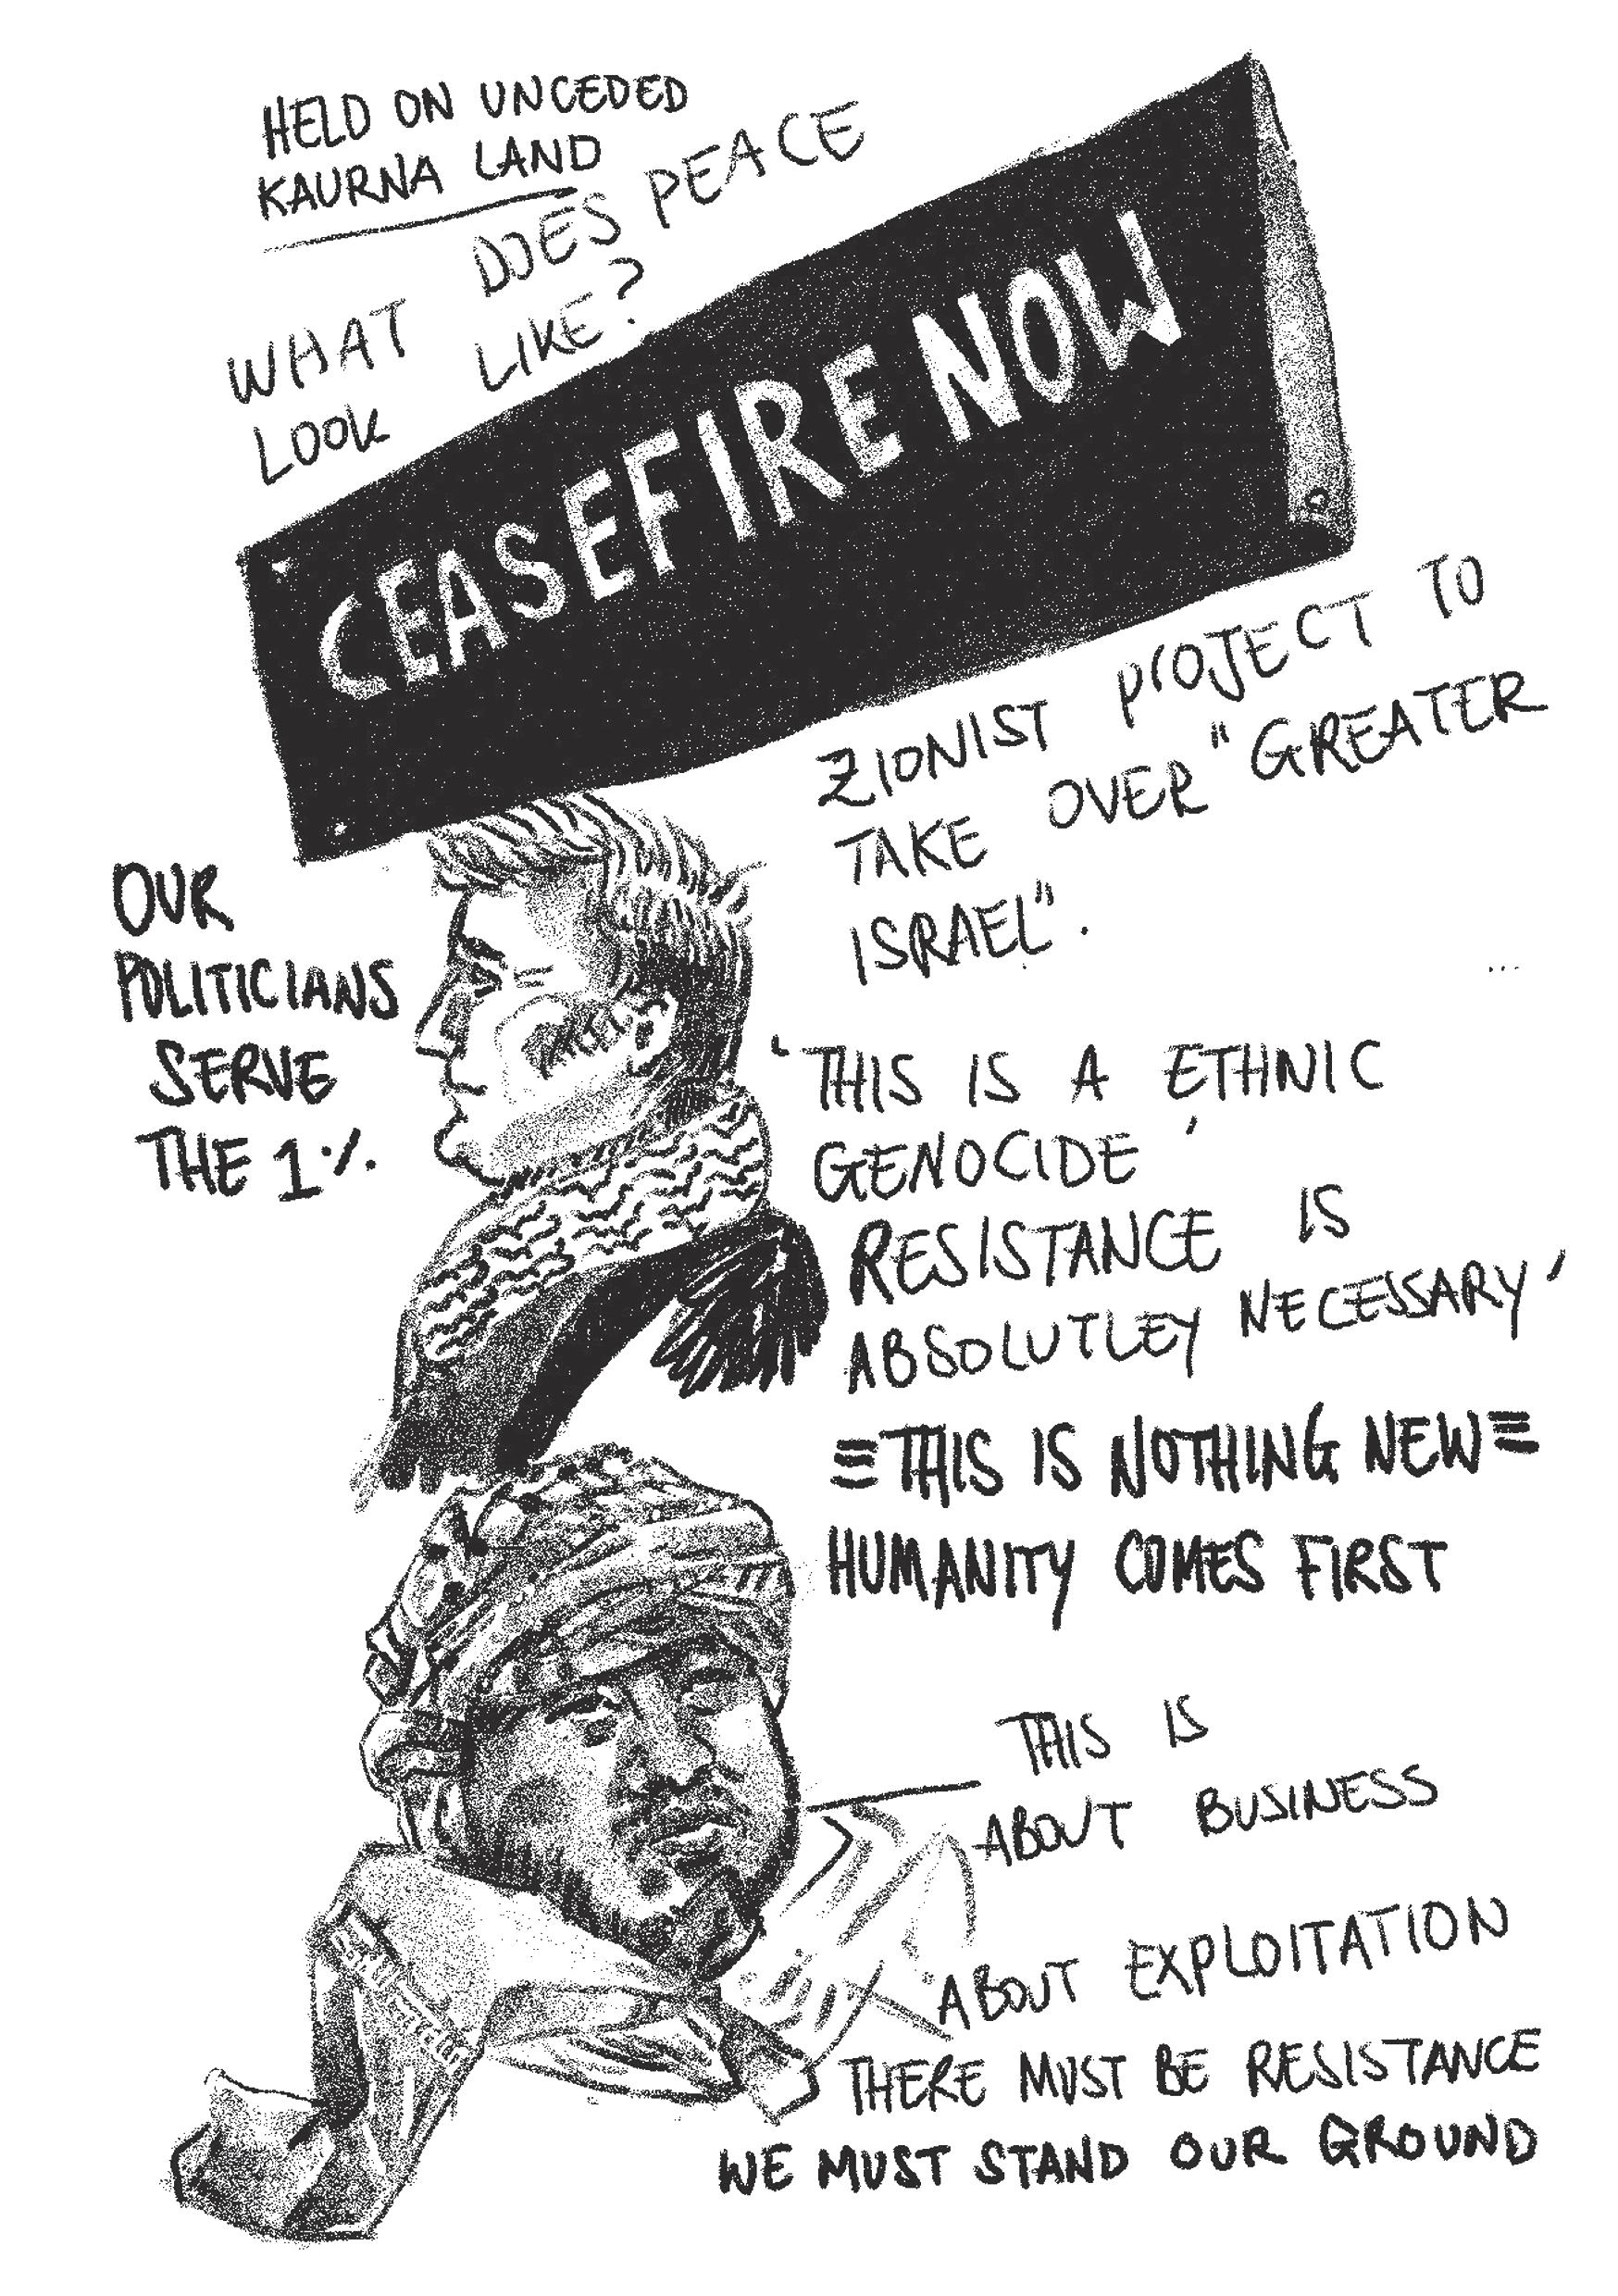 HELD ON UNCEDED
KAURNA LAND
WHAT DOES PEACE
LOOK LIKE?
CEASEFIRE NOW
ZIONIST PROJECT TO
TAKE OVER "GREATER
ISRAEL".
OUR
POLITICIANS
SERVE
THE 1%
'THIS IS A ETHNIC
GENOCIDE'
RESISTANCE IS
ABSOLUTLEY NECESSARY'
THIS IS NOTHING NEW
HUMANITY COMES FIRST
THIS IS
ABOUT BUSINESS
ABOUT EXPLOITATION
THERE MUST BE RESISTANCE
WE MUST STAND OUR GROUND